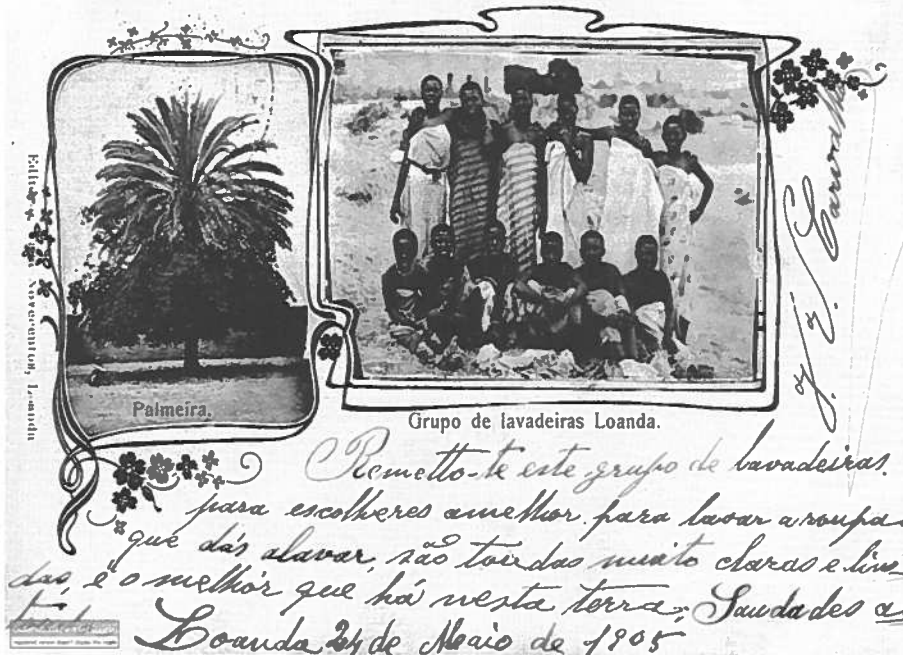 Palmeira.
Grupo de lavadeiras Loanda.
Loanda
J. E. Carvalho
Remetto-te este grupo de lavadeiras,
para escolheres amelhor para lavar a roupa
que dás alavar, são todas muito claras e lin
das, é o melhor que há nesta terra; Saudades a
Loanda 24 de Maio de 1905